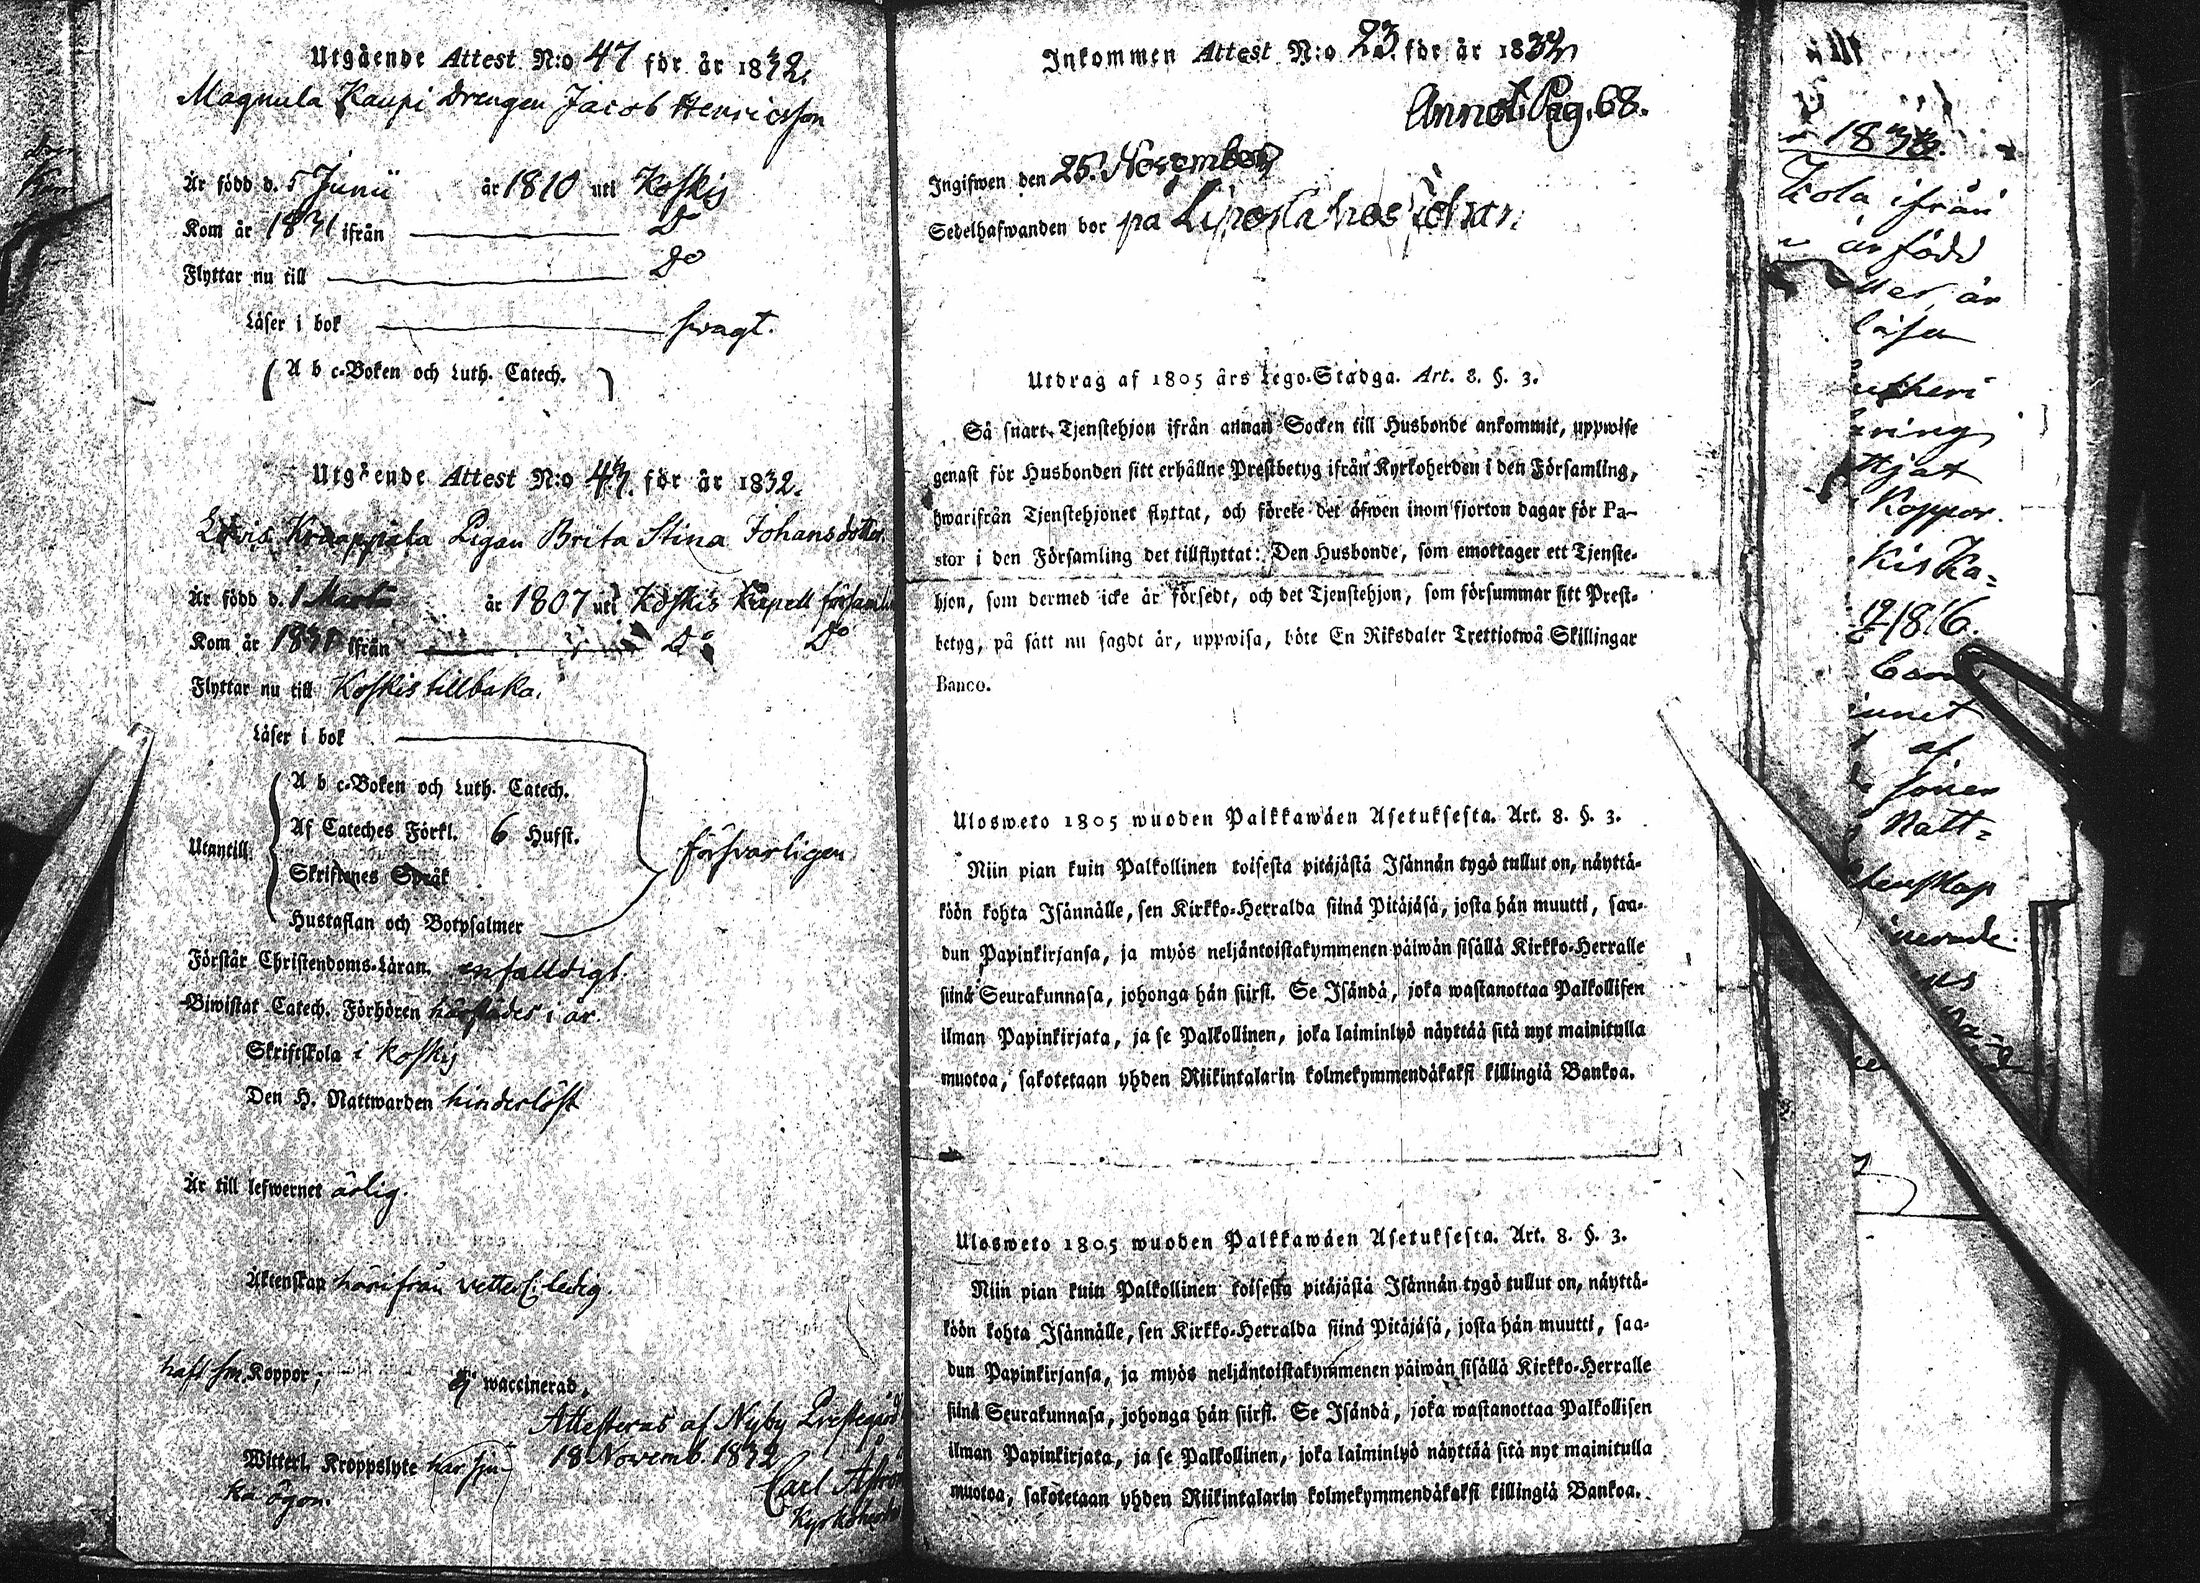 Utgående Attest N:o 47 för år 1832.
Magnula Kaupi Drengen Jacob Henricsson
Är född d. 5 Junii år 1810 uti Koskis
Kom år 1831 ifrån D:o
Flyttar nu till D:o
Läser i bok svagt.
A b c-Boken och Luth. Catech.
Utgående Attest N:o för år 1832.
Pigan Brita Stina Johansdotter
Är född d. 1 Martii år 1807 uti Koskis Kapell
Kom år 1831 ifrån D:o D:o
Flyttar nu till Koskis tillbaka.
Läser i bok
Utantill
A b c-Boken och Luth. Catech.
Af Cateches Förkl. 6 Hufst.
Skriftenes Språk
Hustaflan och Botpsalmer
försvarligen
Förstår Christendoms-Läran. enfalldigt.
Biwistat Catech. Förhören härstädes i år.
Skriftskola i Koskis
Den H. Nattwarden hinderlöst
Är till lefwernet ärlig.
Äktenskap härifrån vetterl: ledig.
haft sm. Koppor; ej waccinerad,
Attesteras af Nyby Prestegård
18 Novemb. 1832
Witterl. Kroppslyte har sju-
ka ögon.
Carl
Inkommen Attest N:o 23. för år 1832
Annot. Pag. 68.
Ingifwen den 25. November
Sedelhafwanden bor på hos
Utdrag af 1805 års Lego-Stadga. Art. 8. §. 3.
Så snart Tjenstehjon ifrån annan Socken till Husbonde ankommit, uppwise
genast för Husbonden sitt erhållne Prestbetyg ifrån Kyrkoherden i den Församling,
hwarifrån Tjenstehjonet flyttat, och förete det äfwen inom fjorton dagar för Pa-
stor i den Församling det tillflyttat: Den Husbonde, som emottager ett Tjenste-
hjon, som dermed icke är försedt, och det Tjenstehjon, som försummar sitt Prest-
betyg, på sätt nu sagdt är, uppwisa, böte En Riksdaler Trettiotwå Skillingar
Banco.
Ulosweto 1805 wuoden Palkkawäen Asetuksesta. Art. 8. §. 3.
Niin pian kuin Palkollinen toisesta pitäjästä Isännän tygö tullut on, näyttä-
köön kohta Isännälle, sen Kirkko-Herralda siinä Pitäjäsä, josta hän muutti, saa-
dun Papinkirjansa, ja myös neljäntoistakymmenen päiwän sisällä Kirkko-Herralle
siinä Seurakunnasa, johonga hän siirst. Se Isändä, joka wastanottaa Palkollisen
ilman Papinkirjata, ja se Palkollinen, joka laiminlyö näyttää sitä nyt mainitulla
muotoa, sakotetaan yhden Riikintalarin kolmekymmendäkaksi killingiä Bankoa.
Ulosweto 1805 wuoden Palkkawäen Asetuksesta. Art. 8. §. 3.
Niin pian kuin Palkollinen toisesta pitäjästä Isännän tygö tullut on, näyttä-
köön kohta Isännälle, sen Kirkko-Herralda siinä Pitäjäsä, josta hän muutti, saa-
dun Papinkirjansa, ja myös neljäntoistakymmenen päiwän sisällä Kirkko-Herralle
siinä Seurakunnasa, johonga hän siirsi. Se Isändä, joka wastanottaa Palkollisen
ilman Papinkirjata, ja se Palkollinen, joka laiminlyö näyttää sitä nyt mainitulla
muotoa, sakotetaan yhden Riikintalarin kolmekymmendäkaksi killingiä Bankoa.
ifrån
är född
år
läsa
Koppor.
1816.
af
Natt-